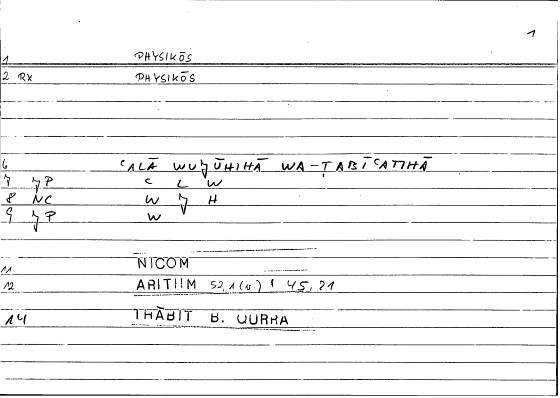 1
1 PHYSIKŌS
2 Rx PHYSIKŌS
6 ʿALĀ WUJŪHIHĀ WA-ṬABĪʿATIHĀ
7 JP ʿ L W
8 NC W J H
9 JP W
11 NICOM
12 ARITHM 52,1 (u.) 45,21
14 THĀBIT B. QURRA